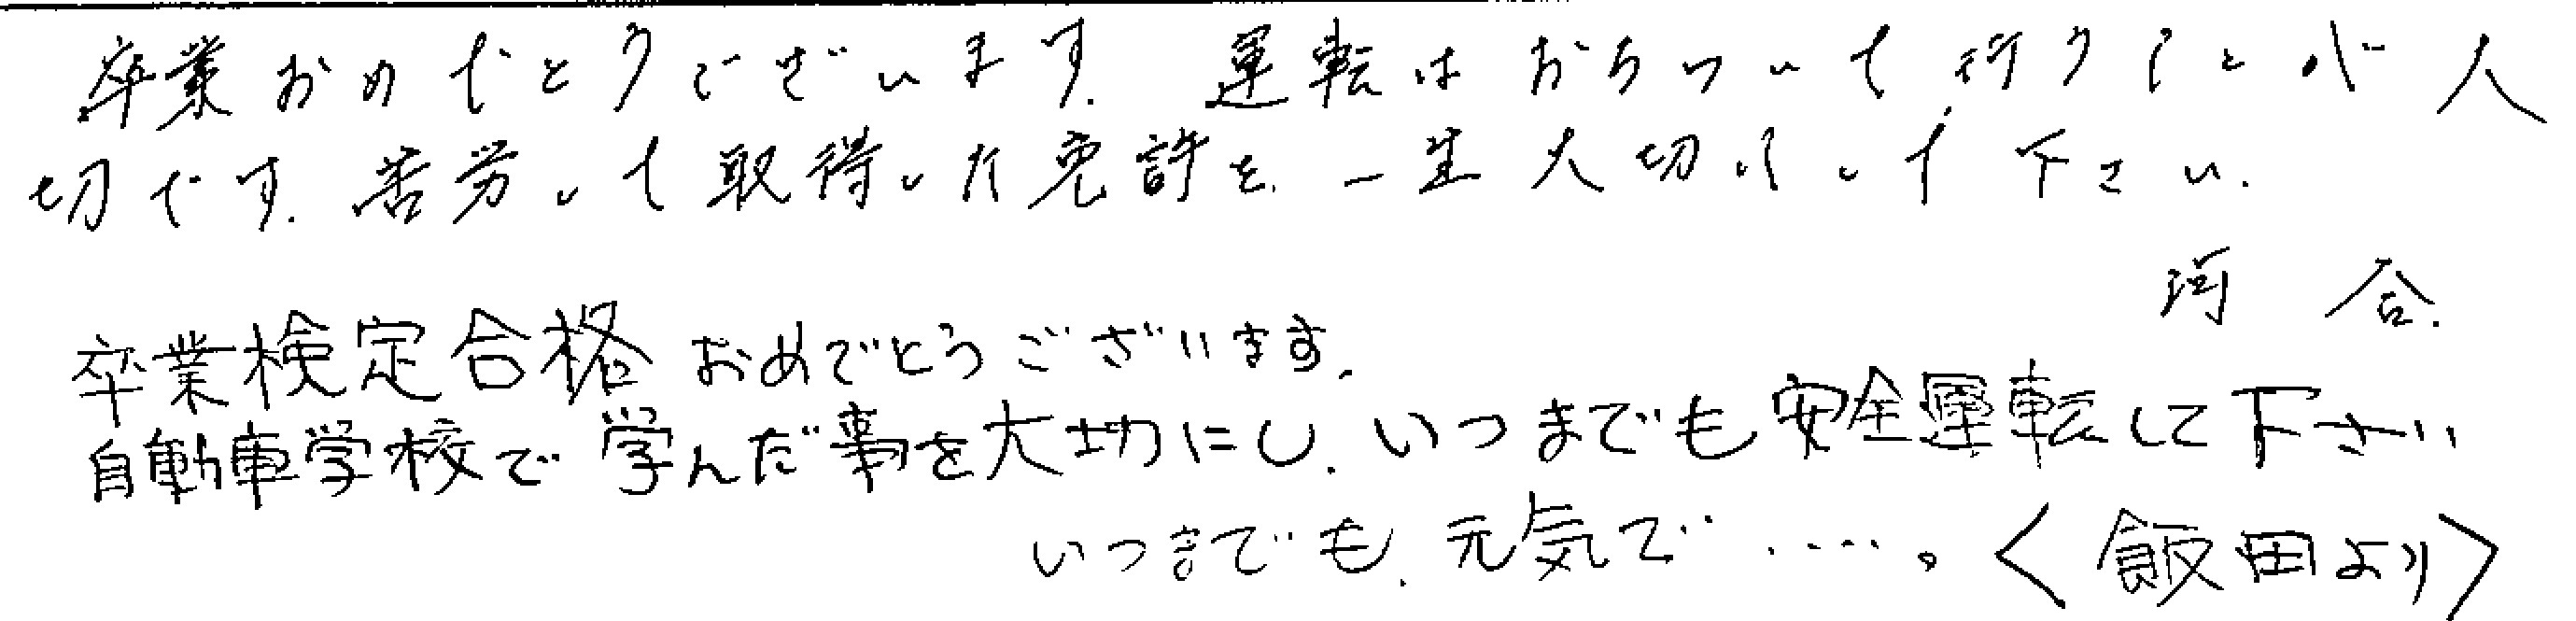 卒業おめでとうございます. 運転はおちついて行うことが大
切です. 苦労して取得した免許を. 一生大切にして下さい.
河合.
卒業検定合格おめでとうございます.
自動車学校で学んだ事を大切にし. いつまでも安全運転して下さい
いつまでも. 元気で……。<飯田より>